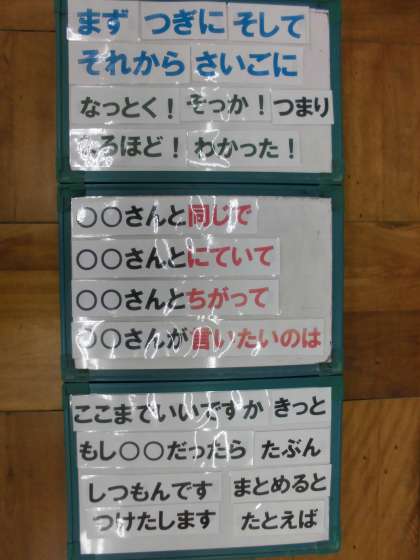 まず つぎに そして
それから さいごに
なっとく! そっか! つまり
なるほど! わかった!
○○さんと同じで
○○さんとにていて
○○さんとちがって
○○さんが言いたいのは
ここまでいいですか きっと
もし○○だったら たぶん
しつもんです まとめると
つけたします たとえば